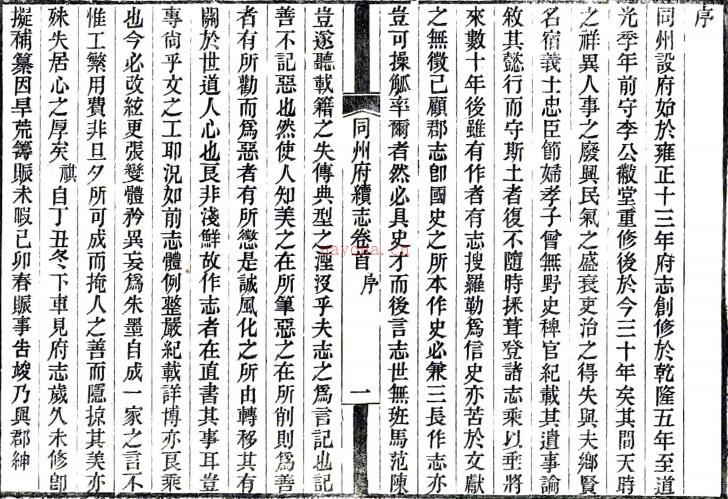 序
同州設府始於雍正十三年府志創修於乾隆五年至道
光季年前守李公敬堂重修後於今三十年矣其間天時
之祥異人事之廢興民氣之盛衰吏治之得失與夫鄉賢
名宿義士忠臣節婦孝子曾無野史稗官紀載其遺事論
敘其懿行而守斯土者復不隨時採葺登諸志乘以垂將
來數十年後雖有作者有志搜羅勒爲信史亦苦於文獻
之無徵已顧郡志卽國史之所本作史必兼三長作志亦
豈可操觚率爾者然必具史才而後言志世無班馬范陳
同州府續志卷首 序 一
豈遂聽載籍之失傳典型之湮沒乎夫志之爲言記也記
善不記惡也然使人知美之在所筆惡之在所削則爲善
者有所勸而爲惡者有所懲是誠風化之所由轉移其有
關於世道人心也良非淺鮮故作志者在直書其事耳豈
專尙乎文之工耶況如前志體例整嚴紀載詳博亦良乘
也今必改絃更張變體矜異妄爲朱墨自成一家之言不
惟工繁用費非旦夕所可成而掩人之善而隱掠其美亦
殊失居心之厚矣祺自丁丑冬下車見府志歲久未修卽
擬補纂因旱荒籌賑未暇己卯春賑事告竣乃與郡紳